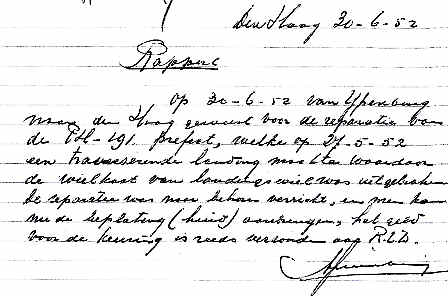 Den Haag 30-6-52
Rapport
Op 30-6-52 van Ypenburg
naar den Haag geweest voor de reparatie van
de PH-191. Prefect, welke op 27-5-52
een traverserende landing maakte waardoor
de wielkast van landingswiel was uitgebroken
De reparatie was naar behoren verricht, en men kan
nu de beplating (huid) aanbrengen, het
voor de keuring is reeds verzonden aan R.L.D.